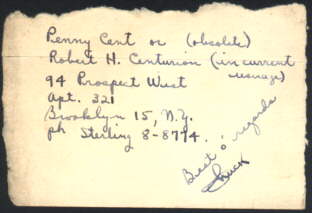 Penny Cent or (obsolete)
Robert H. Centurion (in current useage)
94 Prospect West
Apt. 321
Brooklyn 15, N.Y.
ph Sterling 8-8774.
Best o' regards
Chuck